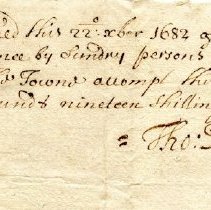 ed this 22º xber 1682 of
nce by Sundry persons
Towne attempt this
unds nineteen Shillin
= Tho: